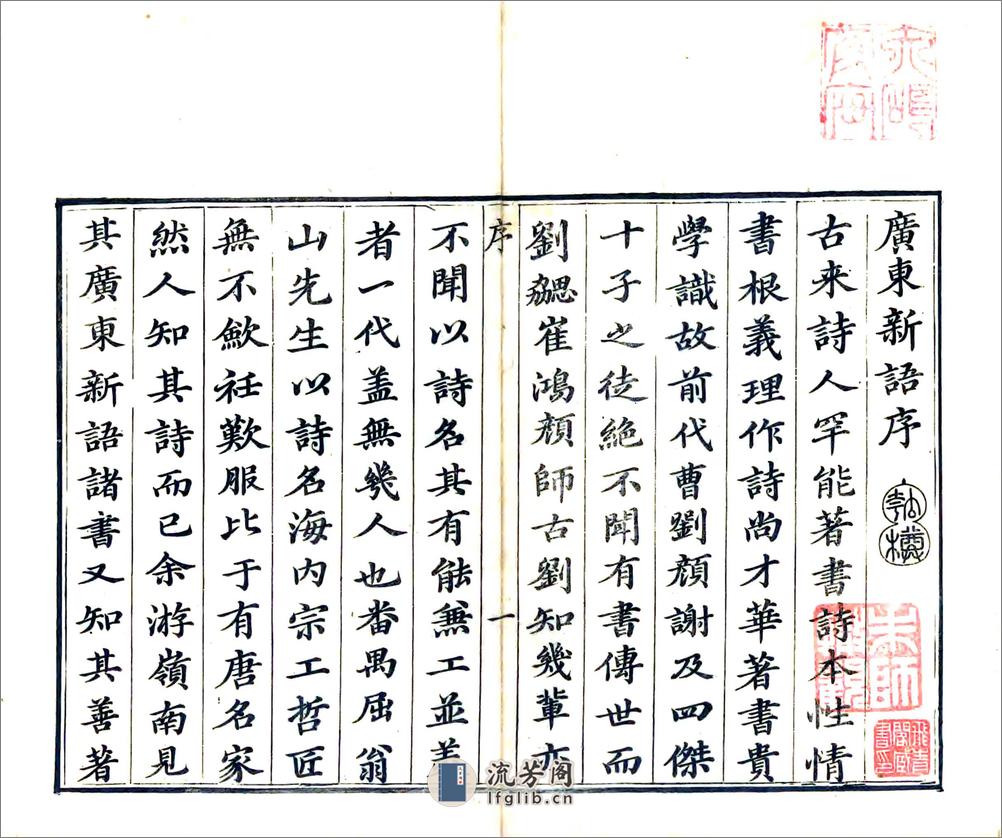 廣東新語序
古来詩人罕能著書詩本性情
書根義理作詩尚才華著書貴
學識故前代曹劉顏謝及四傑
十子之徒絶不聞有書傳世而
劉勰崔鴻顏師古劉知幾輩亦
序 一
不聞以詩名其有能兼工並美
者一代盖無幾人也番禺屈翁
山先生以詩名海内宗工哲匠
無不歛衽歎服比于有唐名家
然人知其詩而已余游嶺南見
其廣東新語諸書又知其善著
流芳阁
lfglib.cn